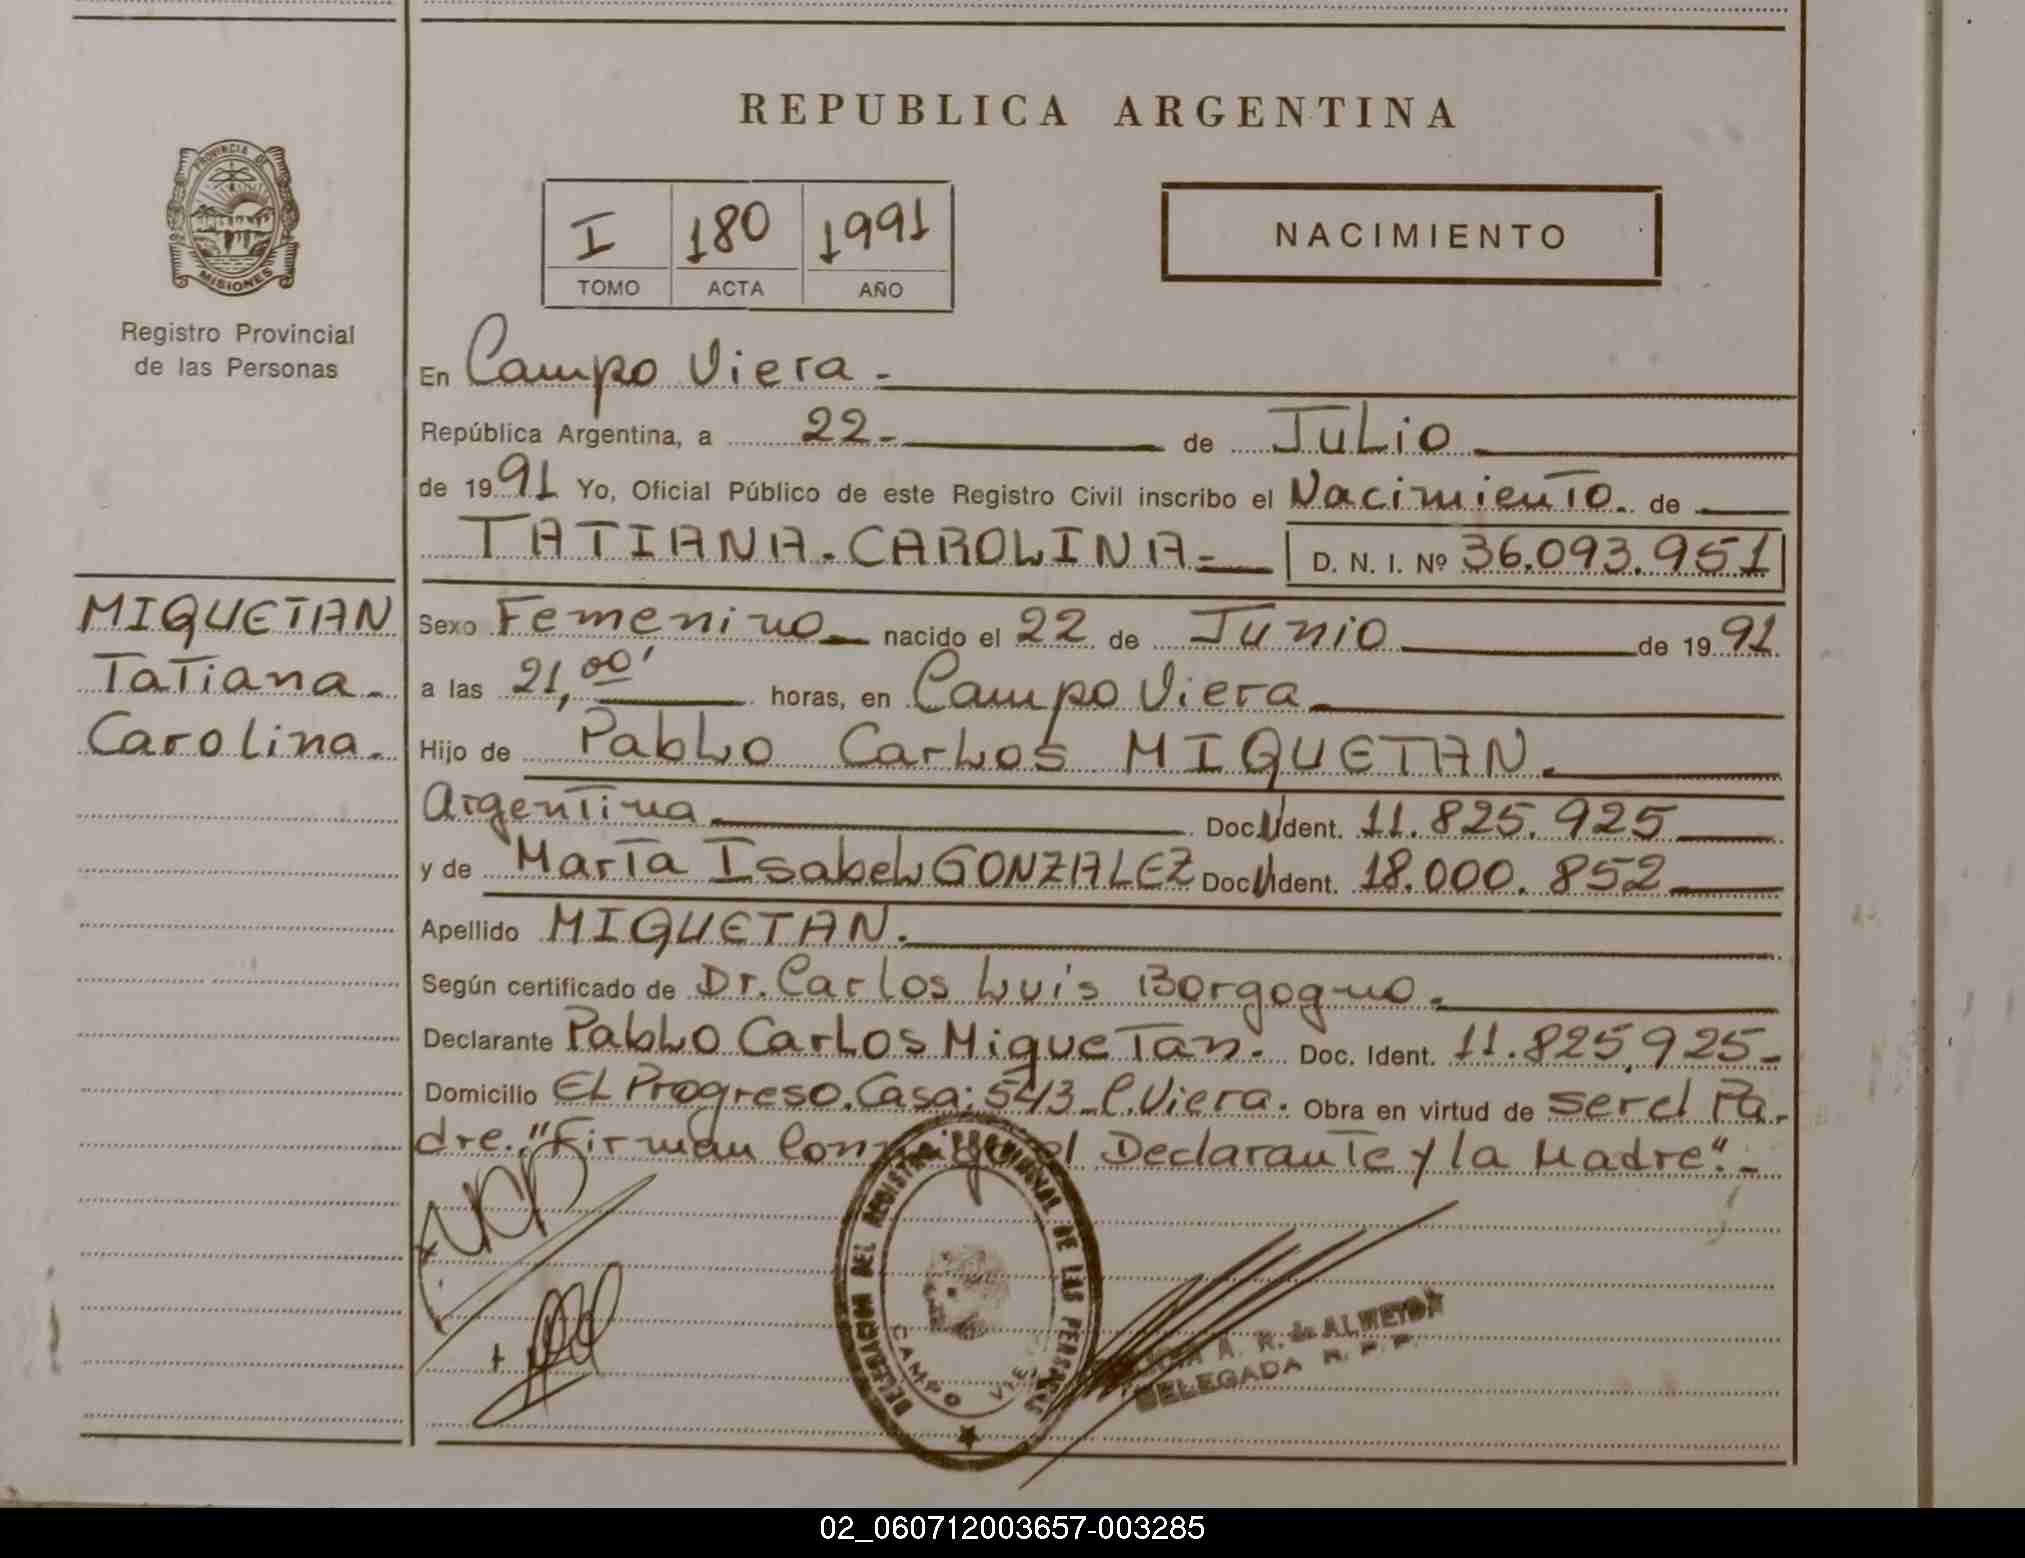 REPUBLICA ARGENTINA
PROVINCIA DE
MISIONES
Registro Provincial
de las Personas
I 180 1991
TOMO ACTA AÑO
NACIMIENTO
En Campo Viera -
República Argentina, a 22- de Julio
de 1991 Yo, Oficial Público de este Registro Civil inscribo el Nacimiento. de
TATIANA-CAROLINA= D. N. I. Nº 36.093.951
MIQUETAN
Tatiana-
Carolina.
Sexo Femenino nacido el 22 de Junio de 1991
a las 21,00' horas, en Campo Viera
Hijo de Pablo Carlos MIQUETAN.
Argentina Doc. Ident. 11.825.925
y de María Isabel GONZALEZ Doc. Ident. 18.000.852
Apellido MIQUETAN.
Según certificado de Dr. Carlos Luis Borgogno.
Declarante Pablo Carlos Miquetan. Doc. Ident. 11.825,925-
Domicilio El Progreso.Casa: 543-C.Viera. Obra en virtud de ser el Pa-
dre. "Firman Conmigo el Declarante y la Madre".-
DELEGACION DEL REGISTRO PROVINCIAL DE LAS PERSONAS
CAMPO VIE
A. R. de ALMEYDA
DELEGADA R. P. P.
02_060712003657-003285